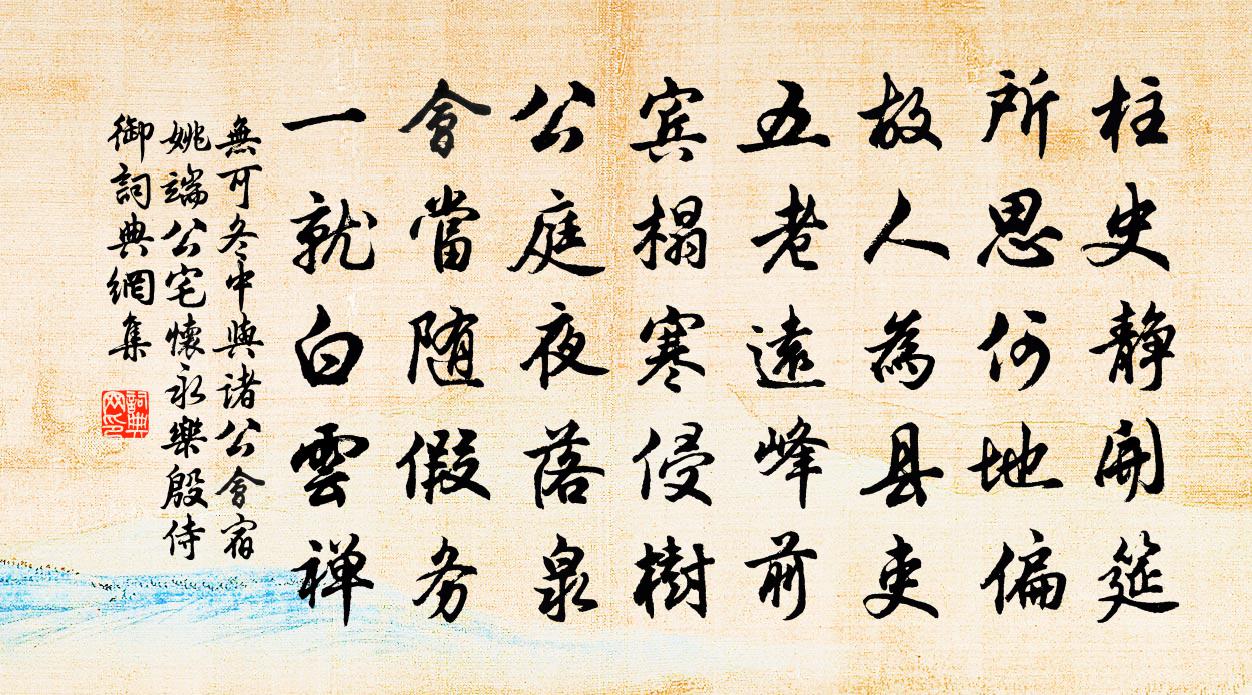 柱史静開筵
所思何地偏
故人為县吏
五老遠峰前
宾榻寒侵樹
公庭夜落泉
會當随假务
一就白雲禅
無可冬中與诸公會宿
姚端公宅懷永樂殷侍
御詞典網集
詞典
网印